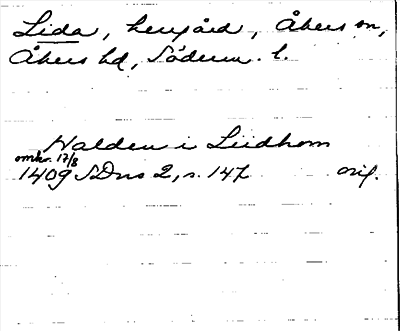 Lida, herrgård, Åkers sn,
Åkers hd, Söderm. l.
Halden i Liidhom
omkr. 17/8
1409 SDns 2, s. 147 orig.